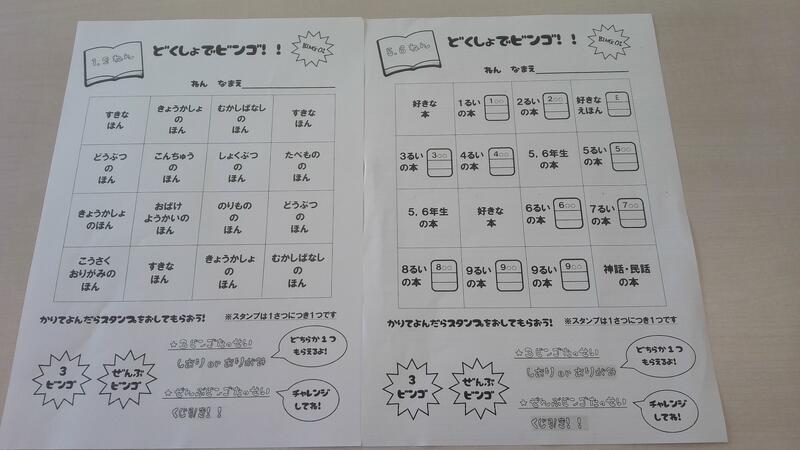 1,2ねん
どくしょでビンゴ!!
BINGO!
ねん なまえ
すきな
ほん
きょうかしょ
の
ほん
むかしばなし
の
ほん
すきな
ほん
どうぶつ
の
ほん
こんちゅう
の
ほん
しょくぶつ
の
ほん
たべもの
の
ほん
きょうかしょ
のほん
おばけ
ようかいの
ほん
のりもの
の
ほん
どうぶつ
の
ほん
こうさく
おりがみの
ほん
すきな
ほん
きょうかしょ
の
ほん
むかしばなし
の
ほん
かりてよんだらスタンプをおしてもらおう! ※スタンプは1さつにつき1つです
3
ビンゴ
ぜんぶ
ビンゴ
☆3ビンゴたっせい
しおり or おりがみ
どちらか1つ
もらえるよ!
☆ぜんぶビンゴたっせい
くじ引き!!
チャレンジ
してね!
5,6ねん
どくしょでビンゴ!!
BINGO!
ねん なまえ
好きな
本
1るい
の本
1○○
2るい
の本
2○○
好きな
えほん
E
3るい
の本
3○○
4るい
の本
4○○
5,6年生
の本
5るい
の本
5○○
5,6年生
の本
好きな
本
6るい
の本
6○○
7るい
の本
7○○
8るい
の本
8○○
9るい
の本
9○○
9るい
の本
9○○
神話・民話
の本
かりてよんだらスタンプをおしてもらおう! ※スタンプは1さつにつき1つです
3
ビンゴ
ぜんぶ
ビンゴ
☆3ビンゴたっせい
しおり or おりがみ
どちらか1つ
もらえるよ!
☆ぜんぶビンゴたっせい
くじ引き!!
チャレンジ
してね!